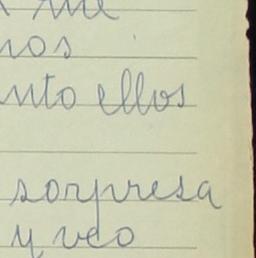 me
nos
nto ellos
sorpresa
y veo